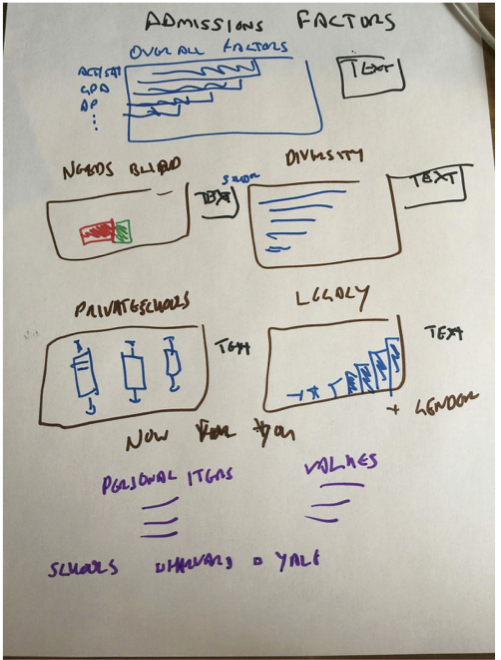 ADMISSIONS FACTORS
OVERALL FACTORS
ACT/SAT
GPA
AP
TEXT
NEEDS BLIND
DIVERSITY
TEXT
TEXT
PRIVATE SCHOOLS
LEGACY
TEXT
TEXT
+ GENDER
NOW FOR YOU
PERSONAL ITEMS
VALUES
SCHOOLS □ HARVARD □ YALE